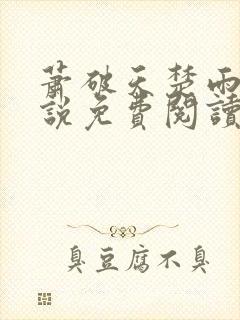 蕭破天楚雨
說免費閱讀
臭豆腐不臭